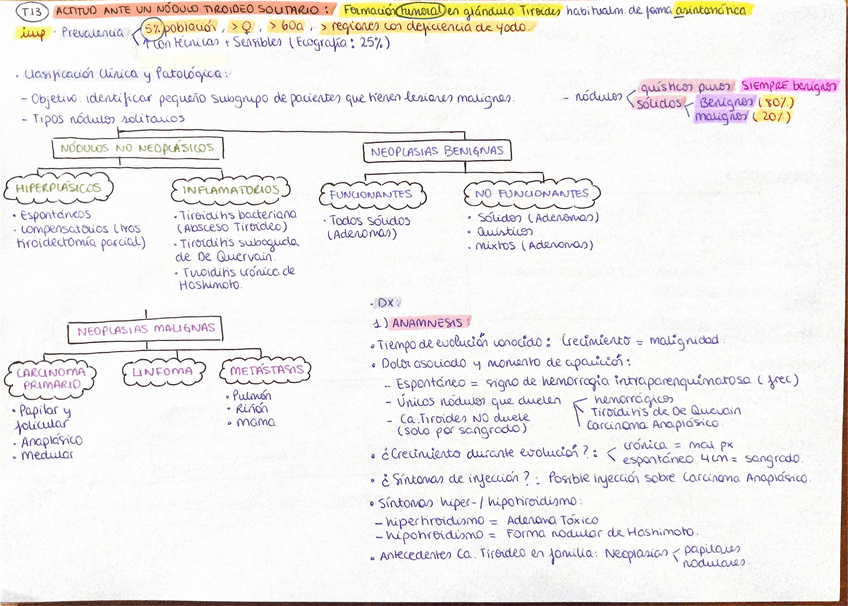 T.13 ACTITUD ANTE UN NÓDULO TIROIDEO SOLITARIO: Formación tumoral en glándula Tiroides habitualm. de forma asintomática
imp · Prevalencia 5% población, > ♀, > 60a, > regiones con deficiencia de yodo.
↑ con técnicas + sensibles (Ecografía: 25%)
· Clasificación Clínica y Patológica:
- Objetivo: identificar pequeño subgrupo de pacientes que tienen lesiones malignas.
- nódulos
quísticos puros: SIEMPRE benignos
sólidos
Benignos (80%)
malignos (20%)
- Tipos nódulos solitarios
NÓDULOS NO NEOPLÁSICOS
NEOPLASIAS BENIGNAS
HIPERPLÁSICOS
· Espontáneos
· compensatorios (tras
tiroidectomía parcial)
INFLAMATORIOS
· Tiroiditis bacteriana
(Absceso Tiroideo)
· Tiroiditis subaguda
de De Quervain.
· Tiroiditis crónica de
Hashimoto.
FUNCIONANTES
· Todos sólidos
(Adenomas)
NO FUNCIONANTES
· Sólidos (Adenomas)
· Quísticos
· mixtos (Adenomas)
NEOPLASIAS MALIGNAS
CARCINOMA
PRIMARIO
· Papilar y
folicular
· Anaplásico
· Medular
LINFOMA
METÁSTASIS
· Pulmón
· Riñón
· mama
· DX:
1) ANAMNESIS:
· Tiempo de evolución conocido: Crecimiento = malignidad
· Dolor asociado y momento de aparición:
- Espontáneo = signo de hemorragia intraparenquimatosa (frec)
- Únicos nódulos que duelen
hemorrágicos
Tiroiditis de De Quervain
Carcinoma Anaplásico.
- Ca. Tiroides NO duele
(solo por sangrado)
· ¿Crecimiento durante evolución?:
crónica = mal px
espontáneo 4cm = sangrado.
· ¿Síntomas de inyección?: Posible inyección sobre Carcinoma Anaplásico.
· Síntomas hiper-/hipotiroidismo:
- hipertiroidismo = Adenoma Tóxico
- hipotiroidismo = Forma nodular de Hashimoto.
· Antecedentes Ca. Tiroideo en familia: Neoplasias
papilares
nodulares.